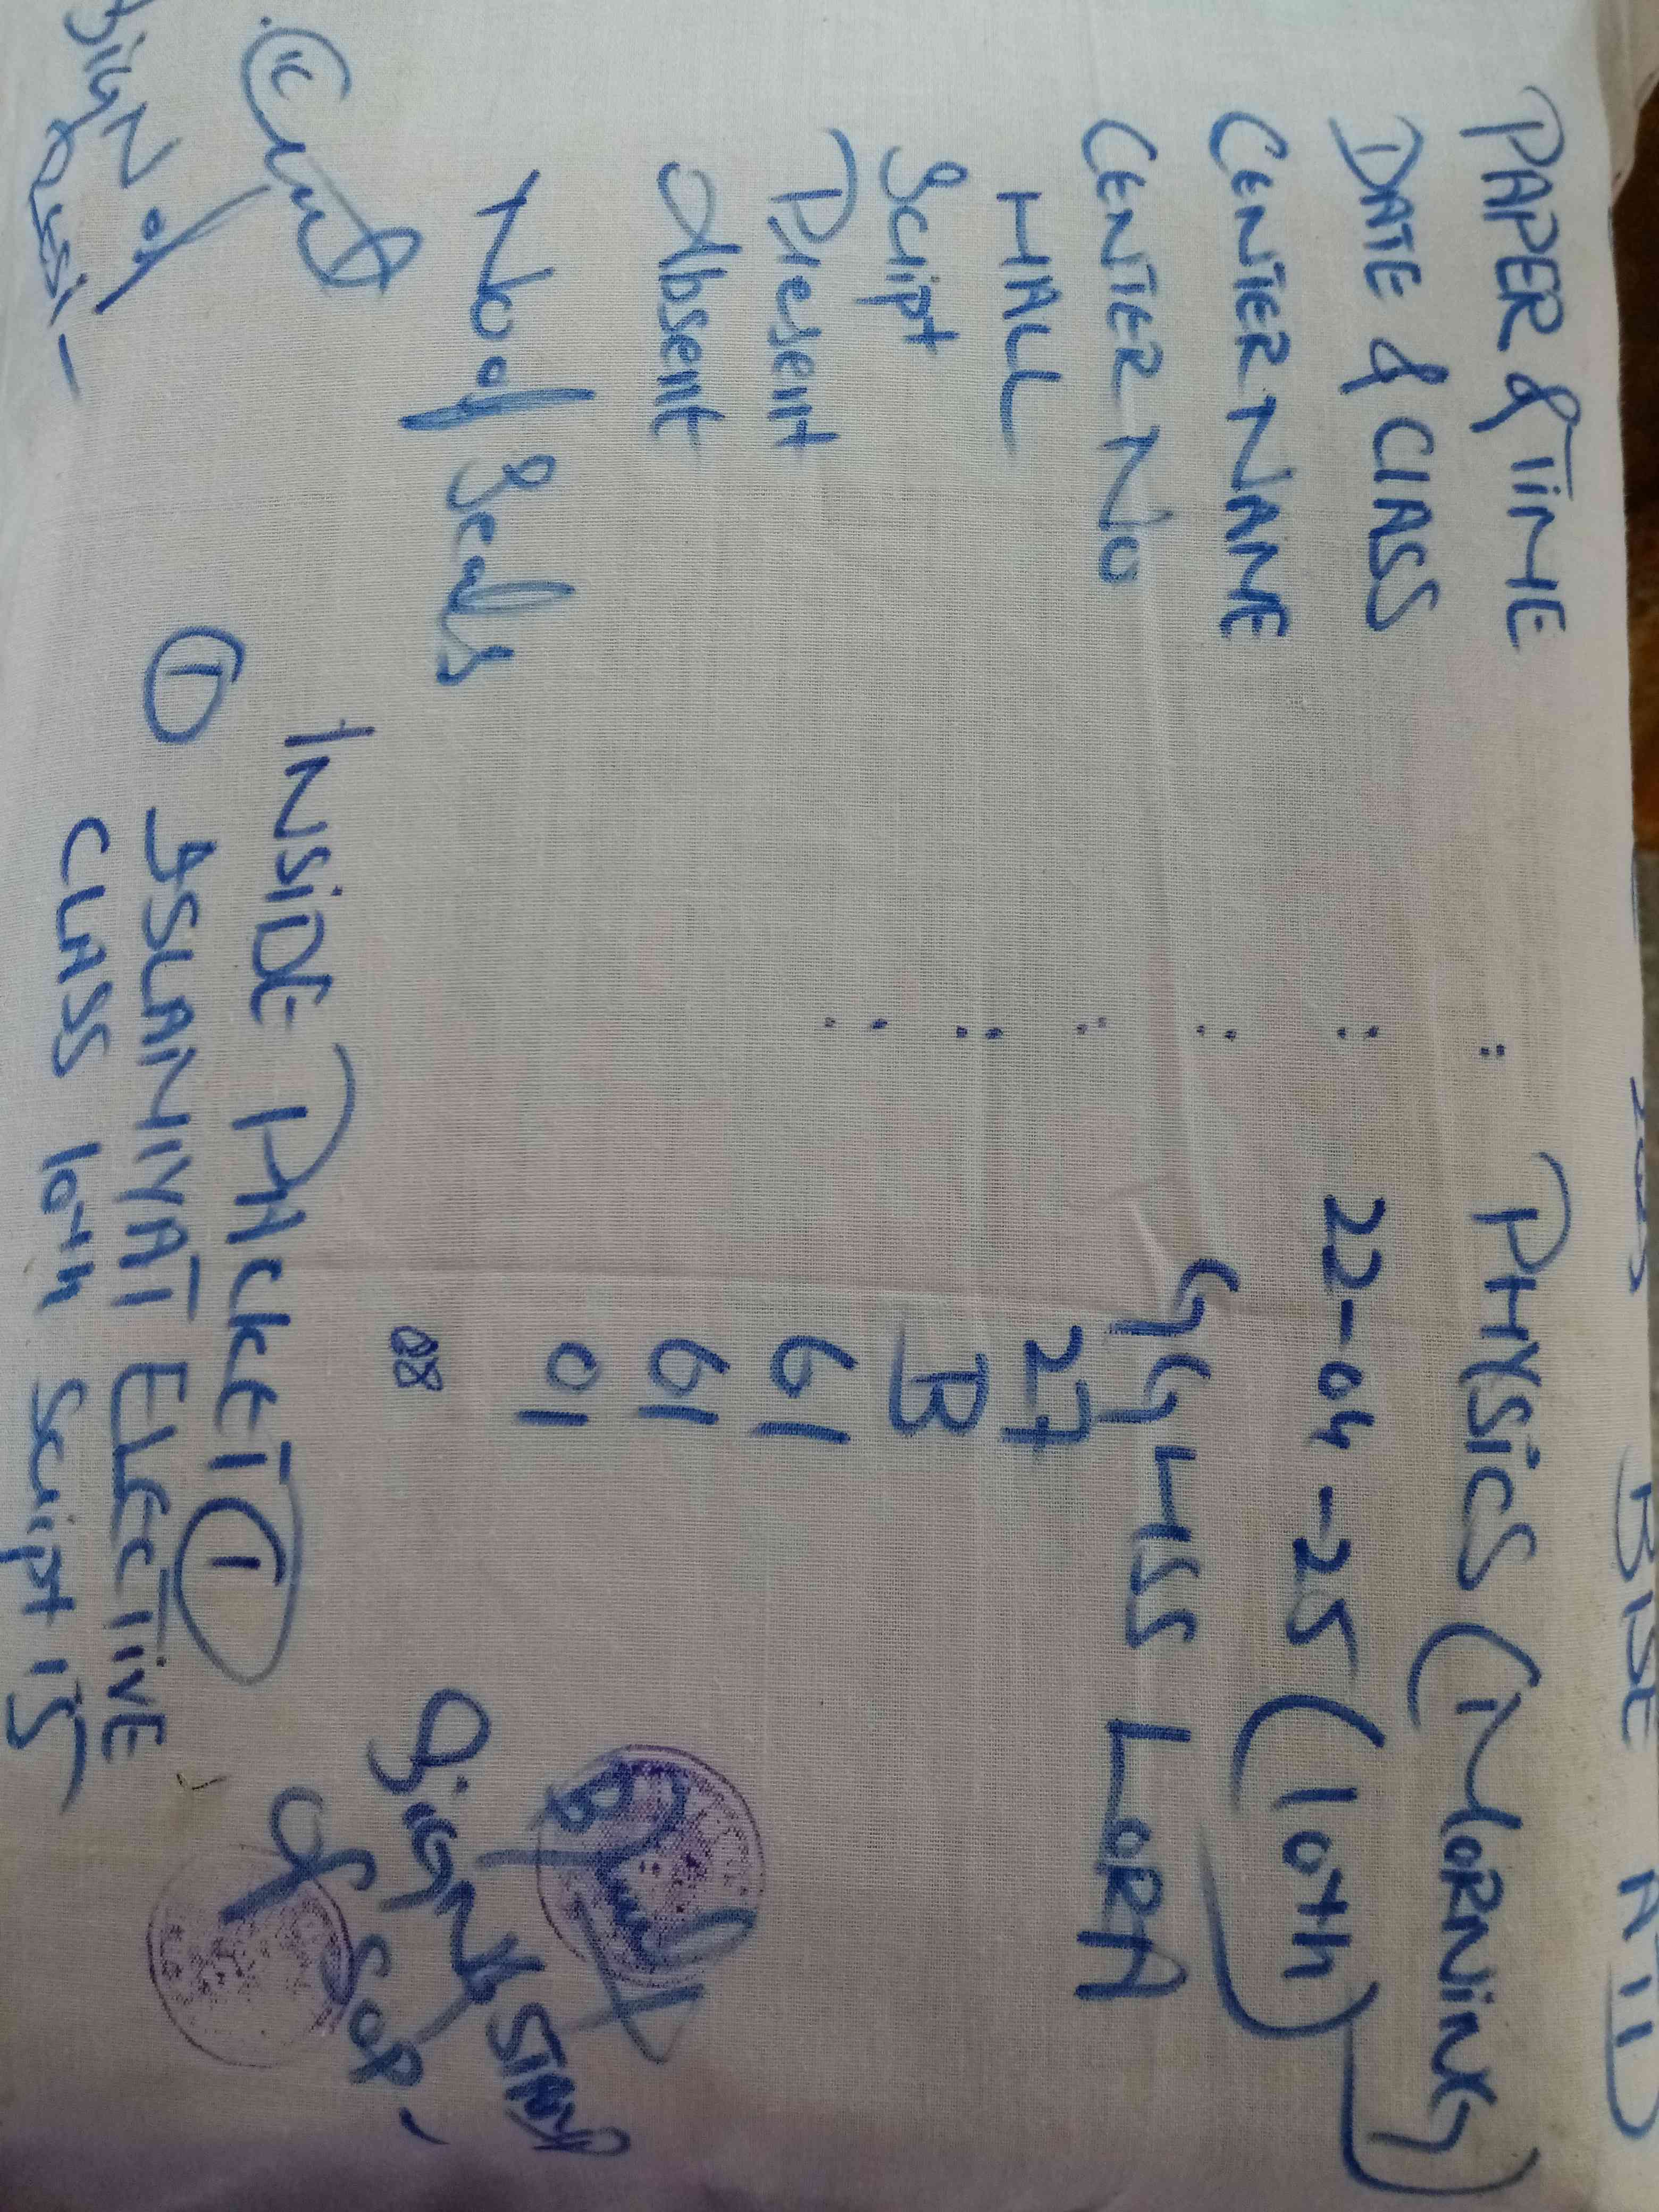 2025 BISE ATD
PAPER & TIME : PHYSICS (MORNING)
DATE & CLASS : 22-04-25 (10th)
CENTER NAME : GGHSS LORA
CENTER NO : 27
HALL : B
Script : 61
Present 61
Absent 01
No of Seals 08
INSIDE PACKET (1)
(1) ISLAMIYAT ELECTIVE
CLASS 10th Script 15
Sign & STAMP
of SOP-
SIGN of
Assi-